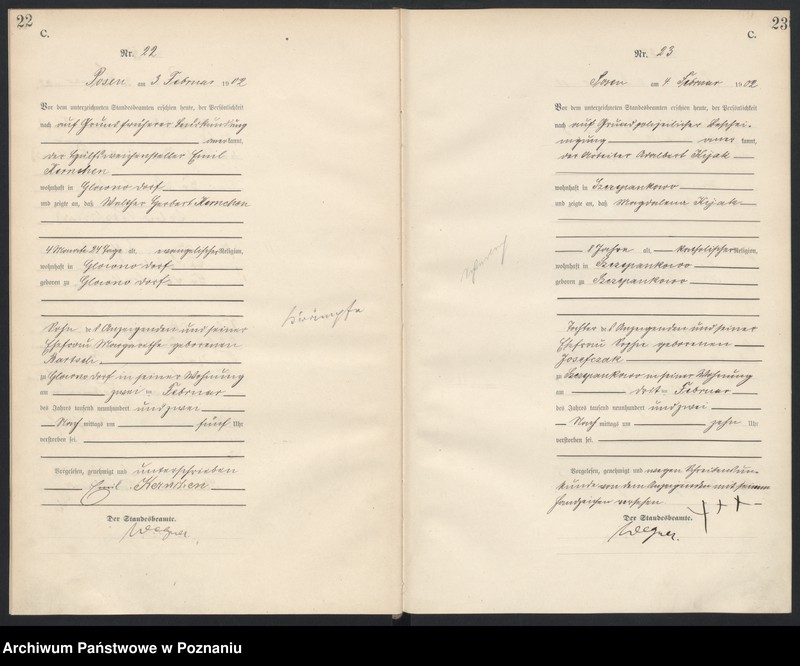 22
C.
Nr. 22
Posen am 3 Februar 1902
Vor dem unterzeichneten Standesbeamten erschien heute, der Persönlichkeit
nach auf Grund früherer
kannt,
der Hülfsweichensteller Emil
Kernchen
wohnhaft in Glowno Dorf
und zeigte an, daß Walther Herbert Kernchen
4 Monate 24 Tage alt, evangelischer Religion,
wohnhaft in Glowno Dorf
geboren zu Glowno Dorf
Sohn des Anzeigenden und seiner
Ehefrau Margarethe geborenen
Bartsch
zu Glowno Dorf in seiner Wohnung
am zwei ten Februar
des Jahres tausend neunhundert und zwei
Nach mittags um fünf Uhr
verstorben sei.
Vorgelesen, genehmigt und unterschrieben
Emil Kernchen
Der Standesbeamte.
Wegner
Krämpfe
23
C.
Nr. 23
Posen am 4 Februar 1902
Vor dem unterzeichneten Standesbeamten erschien heute, der Persönlichkeit
nach auf Grund polizeilicher Beschei-
nigung anerkannt,
der Arbeiter Adalbert Kijak
wohnhaft in Szczepankowo
und zeigte an, daß Magdalena Kijak
8 Jahre alt, katholischer Religion,
wohnhaft in Szczepankowo
geboren zu Szczepankowo
Tochter des Anzeigenden und seiner
Ehefrau Sophie geborenen
Josefczak
zu Szczepankowo in seiner Wohnung
am drit ten Februar
des Jahres tausend neunhundert und zwei
Nach mittags um zehn Uhr
verstorben sei.
Vorgelesen, genehmigt und wegen Schreibensun-
kunde von dem Anzeigenden mit seinem
Handzeichen versehen
+++
Der Standesbeamte.
Wegner.
Archiwum Państwowe w Poznaniu